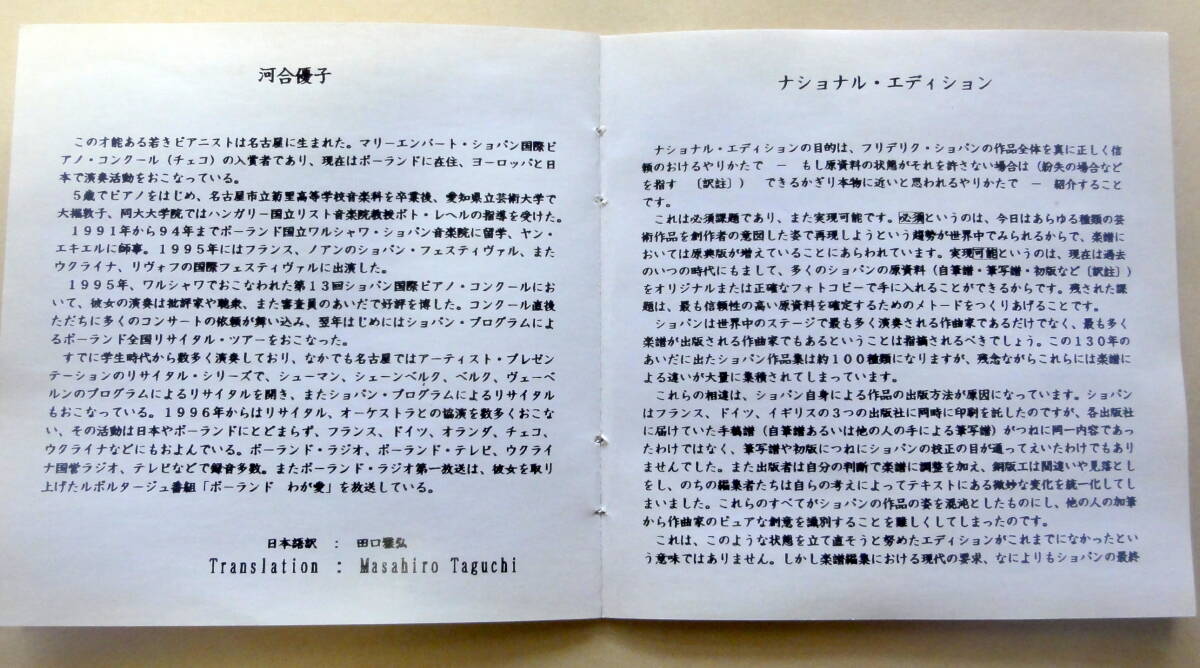 河合優子
この才能ある若きピアニストは名古屋に生まれた。マリーエンバート・ショパン国際ピ
アノ・コンクール（チェコ）の入賞者であり、現在はポーランドに在住、ヨーロッパと日
本で演奏活動をおこなっている。
５歳でピアノをはじめ、名古屋市立菊里高等学校音楽科を卒業後、愛知県立芸術大学で
大堀敦子、同大大学院ではハンガリー国立リスト音楽院教授ポト・レヘルの指導を受けた。
１９９１年から９４年までポーランド国立ワルシャワ・ショパン音楽院に留学、ヤン・
エキエルに師事。１９９５年にはフランス、ノアンのショパン・フェスティヴァル、また
ウクライナ、リヴォフの国際フェスティヴァルに出演した。
１９９５年、ワルシャワでおこなわれた第１３回ショパン国際ピアノ・コンクールにお
いて、彼女の演奏は批評家や聴衆、また審査員のあいだで好評を博した。コンクール直後
ただちに多くのコンサートの依頼が舞い込み、翌年はじめにはショパン・プログラムによ
るポーランド全国リサイタル・ツアーをおこなった。
すでに学生時代から数多く演奏しており、なかでも名古屋ではアーティスト・プレゼン
テーションのリサイタル・シリーズで、シューマン、シェーンベルク、ベルク、ヴェーベ
ルンのプログラムによるリサイタルを開き、またショパン・プログラムによるリサイタル
もおこなっている。１９９６年からはリサイタル、オーケストラとの協演を数多くおこな
い、その活動は日本やポーランドにとどまらず、フランス、ドイツ、オランダ、チェコ、
ウクライナなどにもおよんでいる。ポーランド・ラジオ、ポーランド・テレビ、ウクライ
ナ国営ラジオ、テレビなどで録音多数。またポーランド・ラジオ第一放送は、彼女を取り
上げたルポルタージュ番組「ポーランド　わが愛」を放送している。
日本語訳　：　田口雅弘
Translation : Masahiro Taguchi
ナショナル・エディション
ナショナル・エディションの目的は、フリデリク・ショパンの作品全体を真に正しく信
頼のおけるやりかたで　－　もし原資料の状態がそれを許さない場合は（紛失の場合など
を指す　〔訳註〕）　できるかぎり本物に近いと思われるやりかたで　－　紹介すること
です。
これは必須課題であり、また実現可能です。必須というのは、今日はあらゆる種類の芸
術作品を創作者の意図した姿で再現しようという趨勢が世界中でみられるからで、楽譜に
おいては原典版が増えていることにあらわれています。実現可能というのは、現在は過去
のいつの時代にもまして、多くのショパンの原資料（自筆譜・筆写譜・初版など〔訳註〕）
をオリジナルまたは正確なフォトコピーで手に入れることができるからです。残された課
題は、最も信頼性の高い原資料を確定するためのメトードをつくりあげることです。
ショパンは世界中のステージで最も多く演奏される作曲家であるだけでなく、最も多く
楽譜が出版される作曲家でもあるということは指摘されるべきでしょう。この１３０年の
あいだに出たショパン作品集は約１００種類になりますが、残念ながらこれらには楽譜に
よる違いが大量に集積されてしまっています。
これらの相違は、ショパン自身による作品の出版方法が原因になっています。ショパン
はフランス、ドイツ、イギリスの３つの出版社に同時に印刷を託したのですが、各出版社
に届けていた手稿譜（自筆譜あるいは他の人の手による筆写譜）がつねに同一内容であっ
たわけではなく、筆写譜や初版につねにショパンの校正の目が通ってえいたわけでもあり
ませんでした。また出版者は自分の判断で楽譜に調整を加え、銅版工は間違いや見落とし
をし、のちの編集者たちは自らの考えによってテキストにある微妙な変化を統一化してし
まいました。これらのすべてがショパンの作品の姿を混沌としたものにし、他の人の加筆
から作曲家のピュアな創意を識別することを難しくしてしまったのです。
これは、このような状態を立て直そうと努めたエディションがこれまでになかったとい
う意味ではありません。しかし楽譜編集における現代の要求、なによりもショパンの最終